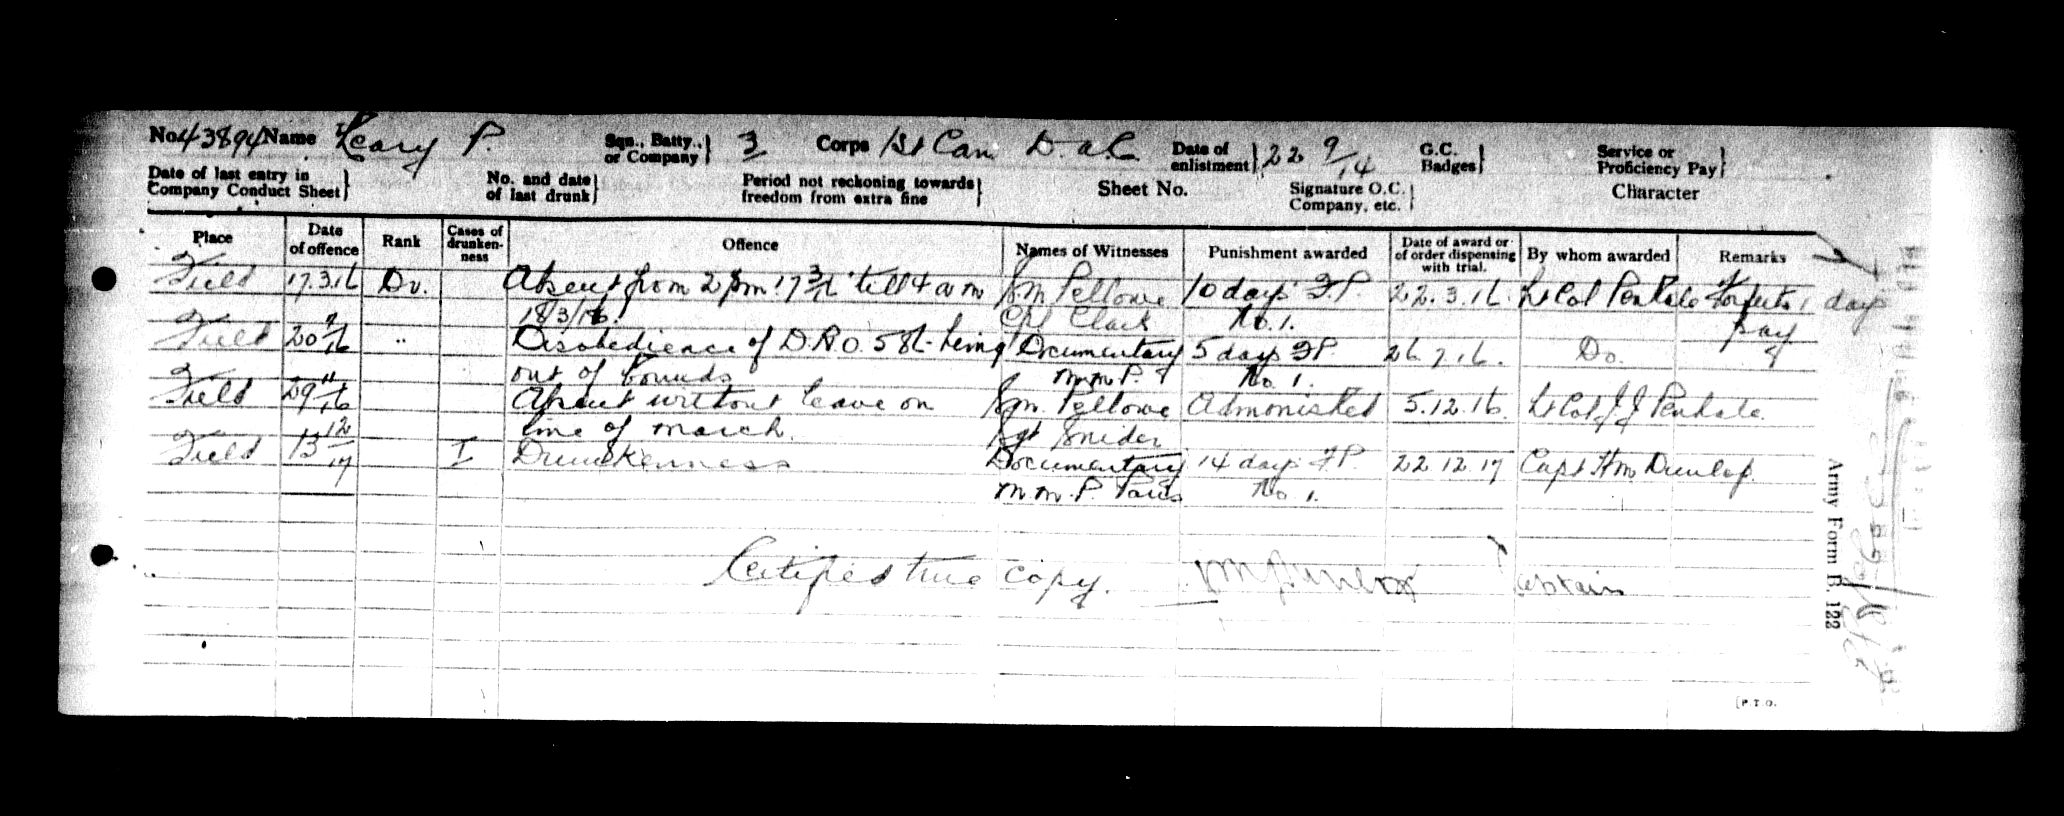 No 43894 Name Keary P. Sqn., Batty., or Company } 3 Corps 1st Can D.A.C. Date of enlistment } 22 9/14 G.C. Badges } Service or Proficiency Pay }
Date of last entry in Company Conduct Sheet } No. and date of last drunk } Period not reckoning towards freedom from extra fine } Sheet No. Signature O.C. Company, etc. } Character
Place Date of offence Rank Cases of drunken-ness Offence Names of Witnesses Punishment awarded Date of award or of order dispensing with trial. By whom awarded Remarks
Field 17.3.16 Dv. Absent from 2 pm 17 3/16 till 4 am Sm Pellowe 10 days F.P. 22.3.16. Lt Col Penhale Forfeits 1 day
18/3/16. Cpl Clark No. 1. pay
Field 20 7/16 " Disobedience of D.R.O. 586 being Documentary 5 days F.P. 26.7.16. Do.
out of bounds M.M.P. No. 1.
Field 29 11/16 Absent without leave on Sm. Pellowe Admonished 5.12.16. Lt Col J J Penhale
line of march. Sgt Snider
Field 13 12/17 I Drunkenness Documentary 14 days F.P. 22.12.17 Capt H M Dunlop.
M.M.P. Paris No. 1.
Certified true copy. Captain
Army Form B. 122
[P.T.O.